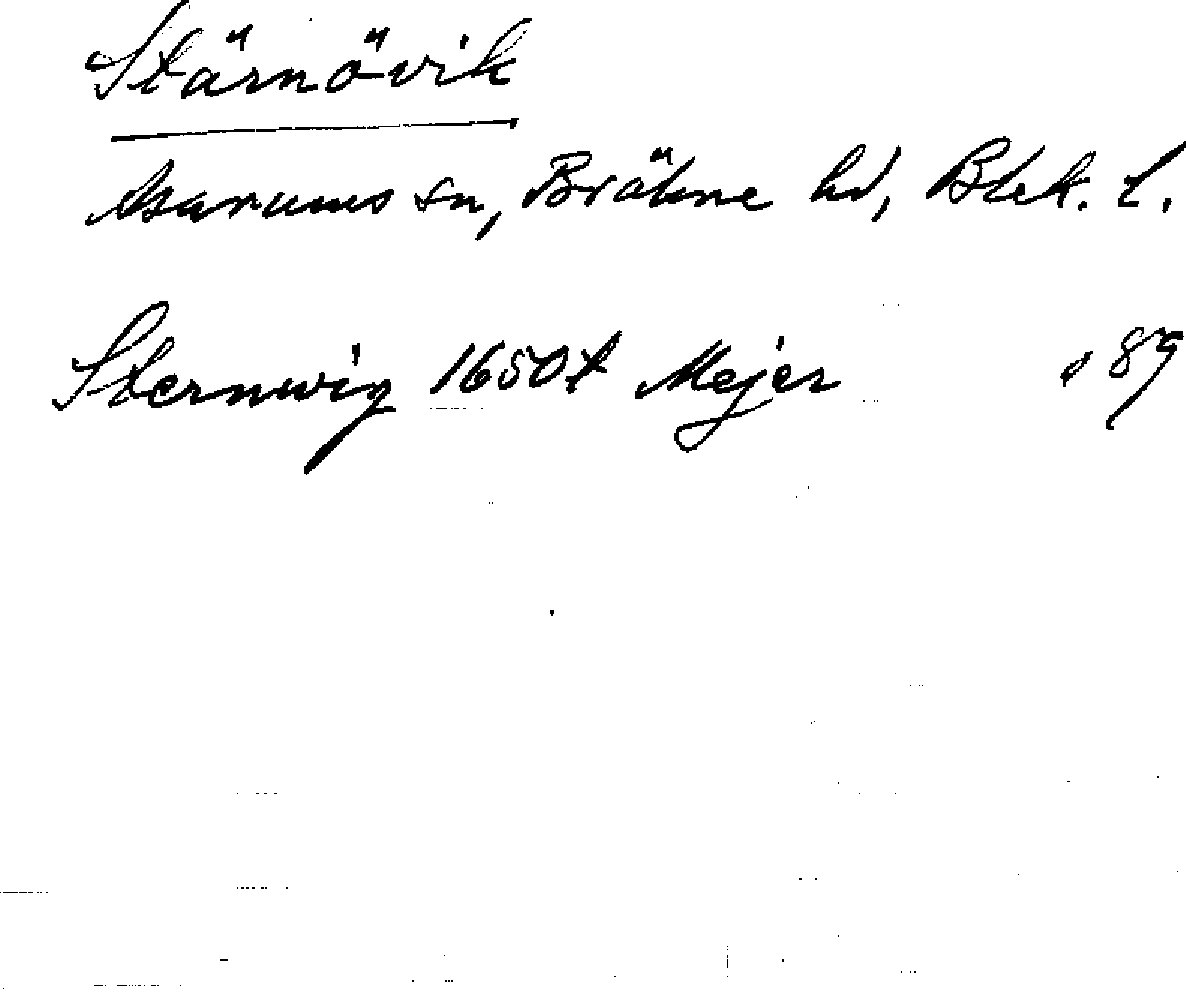 Stärnövik
Asarums sn, Bräkne hd, Blek. l.
Sternwig 1650t Mejer s 89